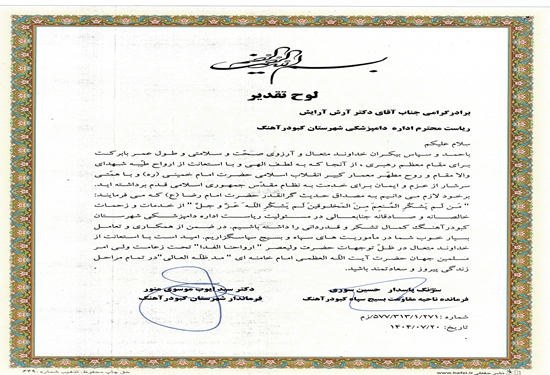 بسم الله الرحمن الرحیم
لوح تقدیر
برادرگرامی جناب آقای دکتر آرش آرایش
ریاست محترم اداره دامپزشکی شهرستان کبودرآهنگ
سلام علیکم
باحمد و سپاس بیکران خداوند متعال و آرزوی صحّت و سلامتی و طول عمر بابرکت
برای مقام معظم رهبری ، از آنجا که به لطف الهی و با استعانت از ارواح طیبه شهدای
والا مقام و روح مطهّر معمار کبیر انقلاب اسلامی حضرت امام خمینی (ره) و با همّتی
سرشار از عزم و ایمان برای خدمت به نظام مقدّس جمهوری اسلامی قدم برداشته اید.
برخود لازم می دانیم به مصداق حدیث گرانقدر حضرت امام رضا (ع) که می فرمایند:
" مَن لَم یَشکُرِ المُنعِمَ مِنَ المَخلوقینَ لَم یَشکُرِ اللهَ عَزَّ وَ جلّ" از خدمات و زحمات
خالصانه و صادقانه جنابعالی در مسئولیت ریاست اداره دامپزشکی شهرستان
کبودرآهنگ کمال تشکر و قدردانی را داشته باشیم. در ضمن از همکاری و تعامل
بسیار خوب شما در مأموریت های سپاه و بسیج سپاسگزاریم. امید است با استعانت از
خداوند متعال در ظلّ توجهات حضرت ولیعصر "ارواحنا الفدا" تحت زعامت ولی امر
مسلمین جهان حضرت آیت الله العظمی امام خامنه ای " مد ظله العالی"در تمام مراحل
زندگی پیروز و سعادتمند باشید.
سرهنگ پاسدار حسین سوری
فرمانده ناحیه مقاومت بسیج سپاه کبودرآهنگ
دکتر سید ایوب موسوی منور
فرماندار شهرستان کبودرآهنگ
شماره: ۵۷۷/۳۱۳/۱/۲۷۱/زم
تاریخ: ۱۴۰۴/۰۷/۲۰
www.hafzi.ir
حق چاپ محفوظ. تذهیب شماره: ۴۴۹